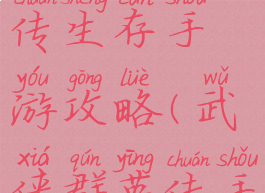 chuán shēng cún shǒu
传生存手
yóu gōng lüè wǔ
游攻略(武
xiá qún yīng chuán shǒu
侠群英传手